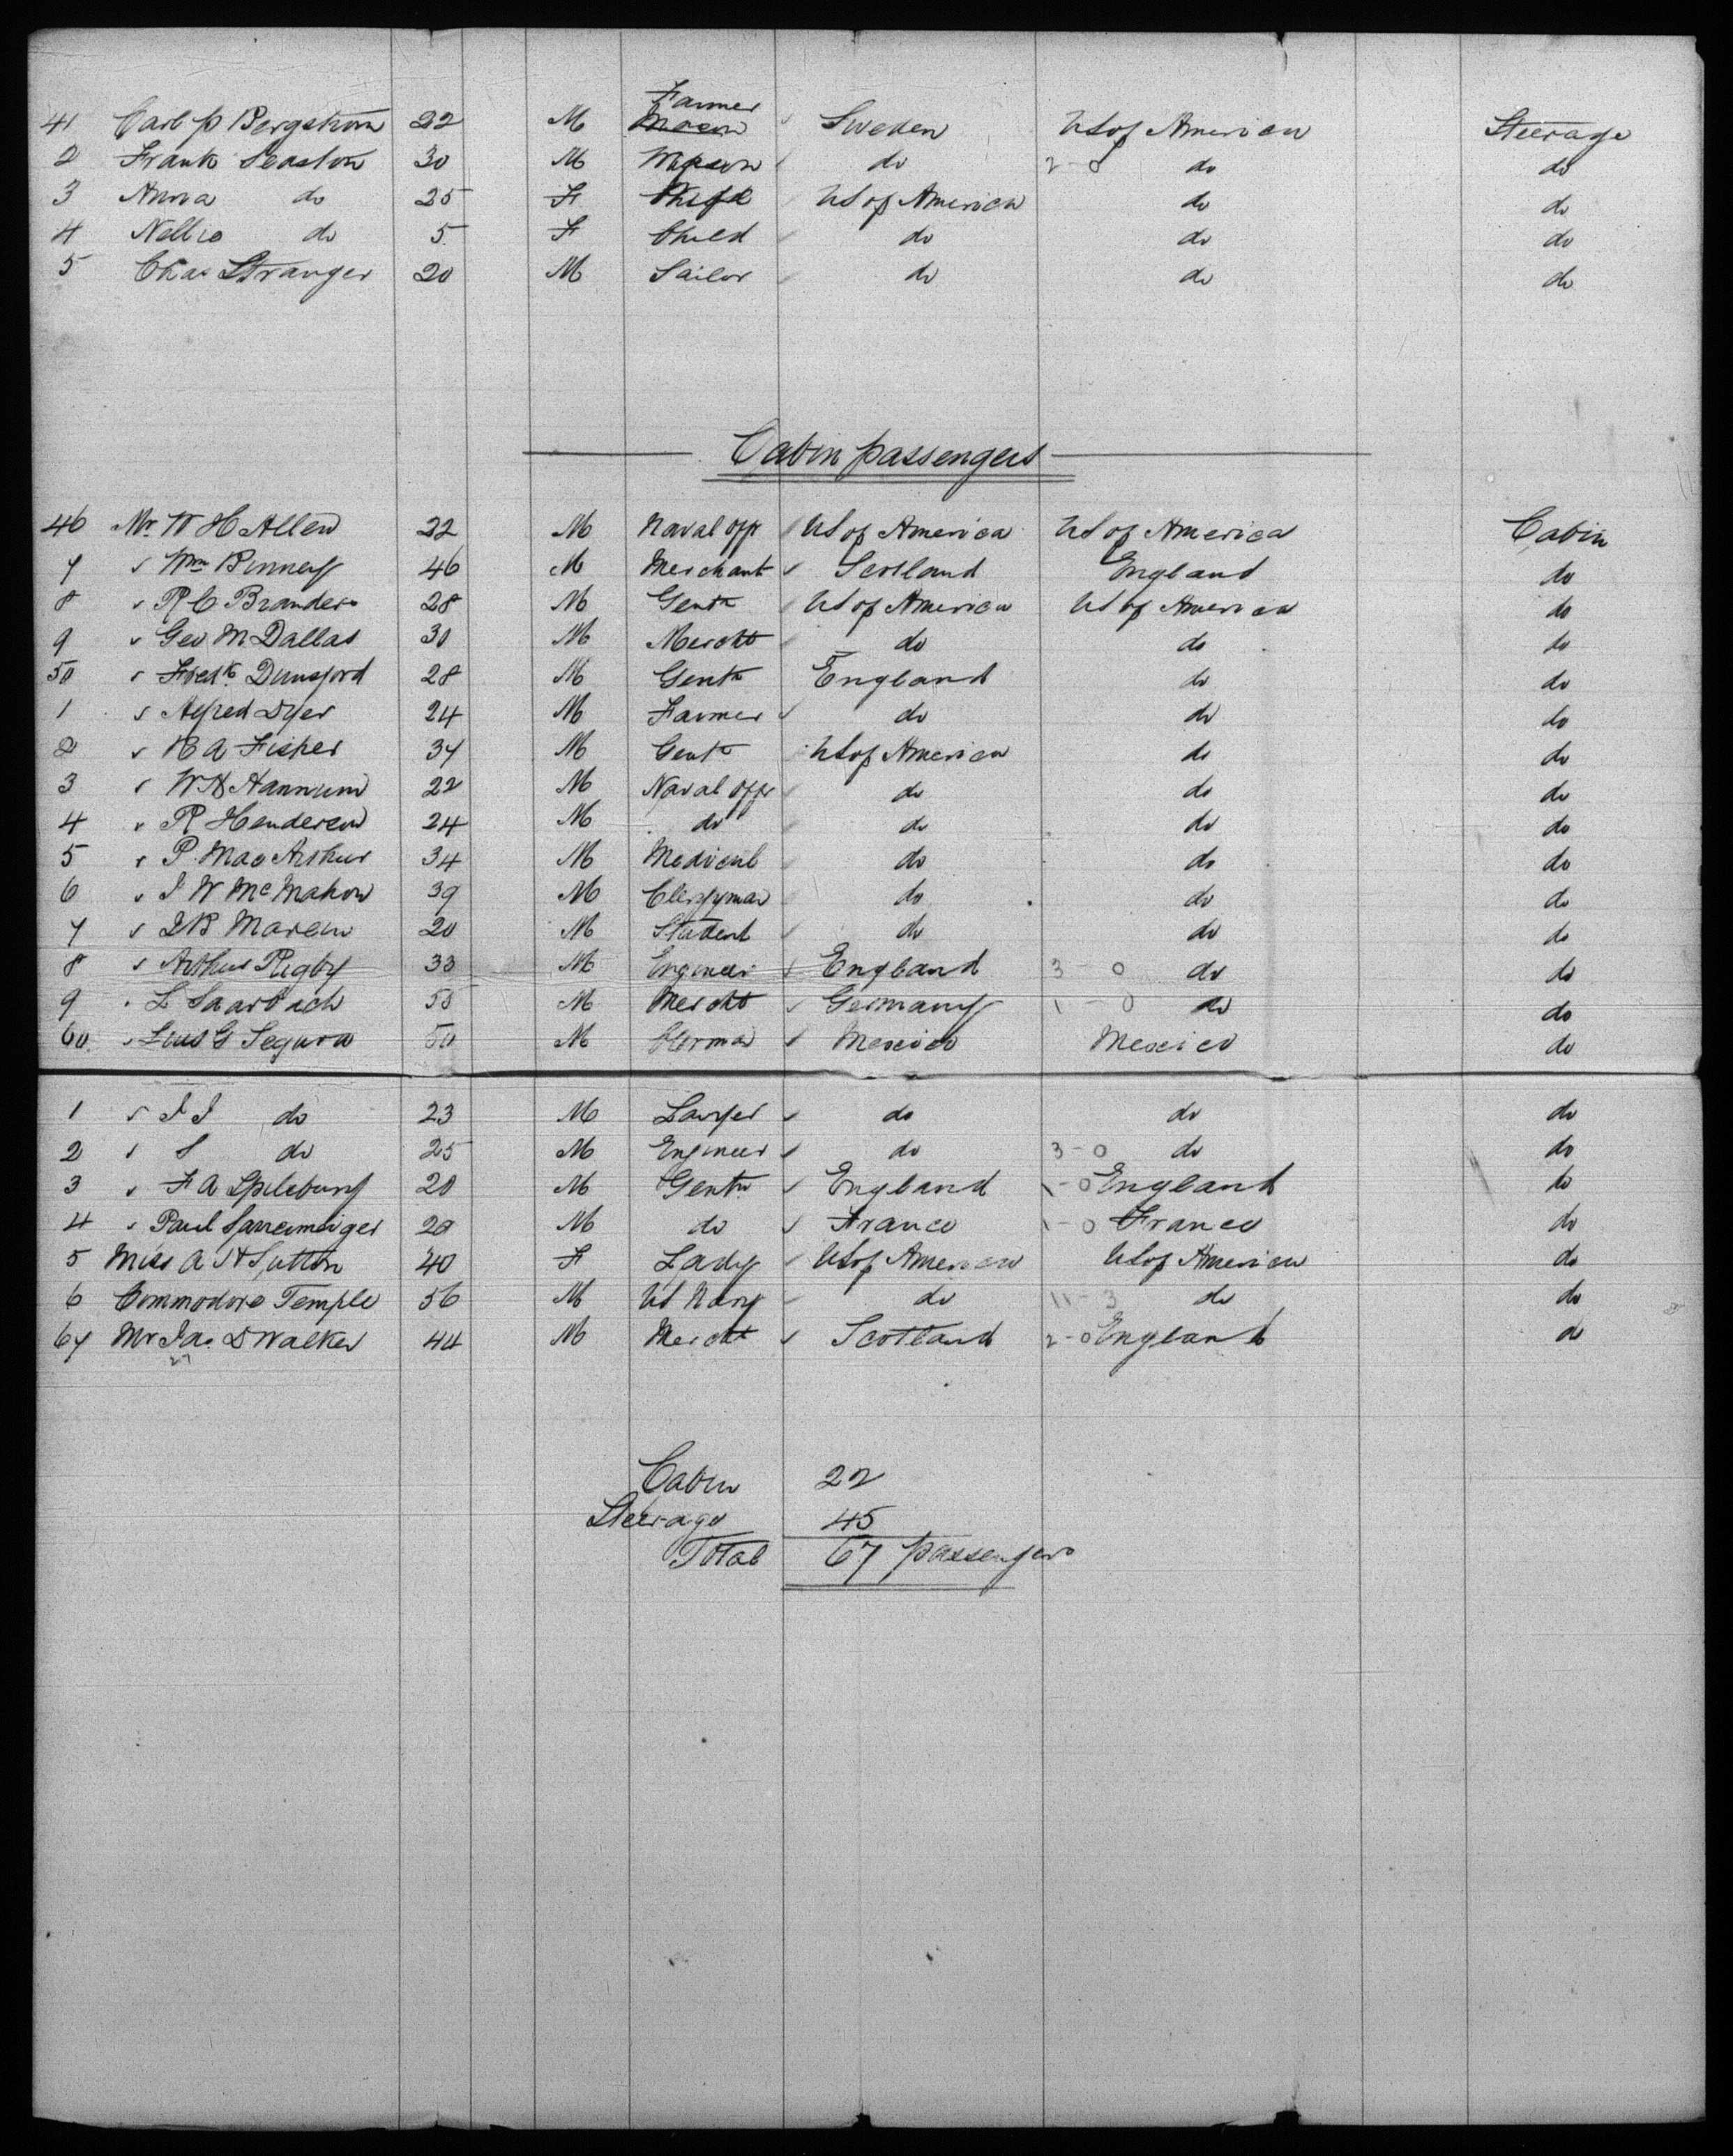 Farmer
41 Carl P Bergstrom 22 M Mason Sweden US of America Steerage
2 Frank Seaston 30 M Mason do 2-0 do do
3 Anna do 25 F Wife US of America do do
4 Nellie do 5 F Child do do do
5 Chas Stranger 20 M Sailor do do do
Cabin passengers
46 Mr W H Allen 22 M Naval Offr US of America US of America Cabin
7 " Wm Binney 46 M Merchant Scotland England do
8 " R C Brander 28 M Gentn US of America US of America do
9 " Geo M Dallas 30 M Mercht do do do
50 " Fredk Dunsford 28 M Gentn England do do
1 " Alfred Dyer 24 M Farmer do do do
2 " H A Fisher 34 M Gentn US of America do do
3 " W H Hannum 22 M Naval Offr do do do
4 " R Henderson 24 M do do do do
5 " P. MacArthur 34 M Medical do do do
6 " J W McMahon 39 M Clergyman do do do
7 " Maram 20 M Student do do do
8 " Arthur Rigby 33 M Engineer England 3 0 do do
9 " L Saarbach 50 M Mercht Germany 1-0 do do
60 " Luis G Segura 50 M Mexico Mexico do
1 " J J do 23 M Lawyer do do do
2 " S do 25 M Engineer do 3-0 do do
3 " F A Spilsbury 20 M Gentn England 1-0 England do
4 " Paul 20 M do France 1-0 France do
5 Miss A H Sutton 40 F Lady US of America US of America do
6 Commodore Temple 56 M US Navy do 11-3 do do
67 Mr Jas D Walker 44 M Mercht Scotland 2-0 England do
Cabin 22
Steerage 45
Total 67 passengers